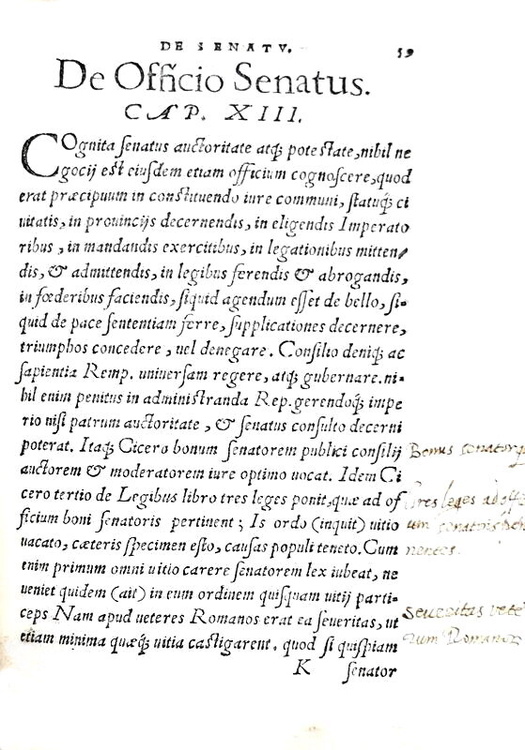 DE SENATV. 59
De Officio Senatus.
CAP. XIII.
COgnita senatus auctoritate atq; potestate, nihil ne
gocij est eiusdem etiam officium cognoscere, quod
erat præcipuum in constituendo iure communi, statuq; ci
uitatis, in prouincijs decernendis, in eligendis Imperato
ribus, in mandandis exercitibus, in legationibus mitten/
dis, & admittendis, in legibus ferendis & abrogandis,
in fœderibus faciendis, siquid agendum esset de bello, si-
quid de pace sententiam ferre, supplicationes decernere,
triumphos concedere, uel denegare. Consilio deniq; ac
sapientia Remp. uniuersam regere, atq; gubernare. ni-
hil enim penitus in administranda Rep. gerendoq; impe
rio nisi patrum auctoritate, & senatus consulto decerni
poterat. Itaq; Cicero bonum senatorem publici consilij
auctorem & moderatorem iure optimo uocat. Idem Ci
cero tertio de Legibus libro tres leges ponit, quæ ad of
ficium boni senatoris pertinent; Is ordo (inquit) uitio
uacato, cæteris specimen esto, causas populi teneto. Cum
enim primum omni uitio carere senatorem lex iubeat, ne
ueniet quidem (ait) in eum ordinem quisquam uitij parti-
ceps Nam apud ueteres Romanos erat ea seueritas, ut
etiam minima quæq; uitia castigarent. quod si quispiam
K senator
Bonus senator
Tres leges ad
um senatoris
nentes.
Seueritas vete
rum Romanor